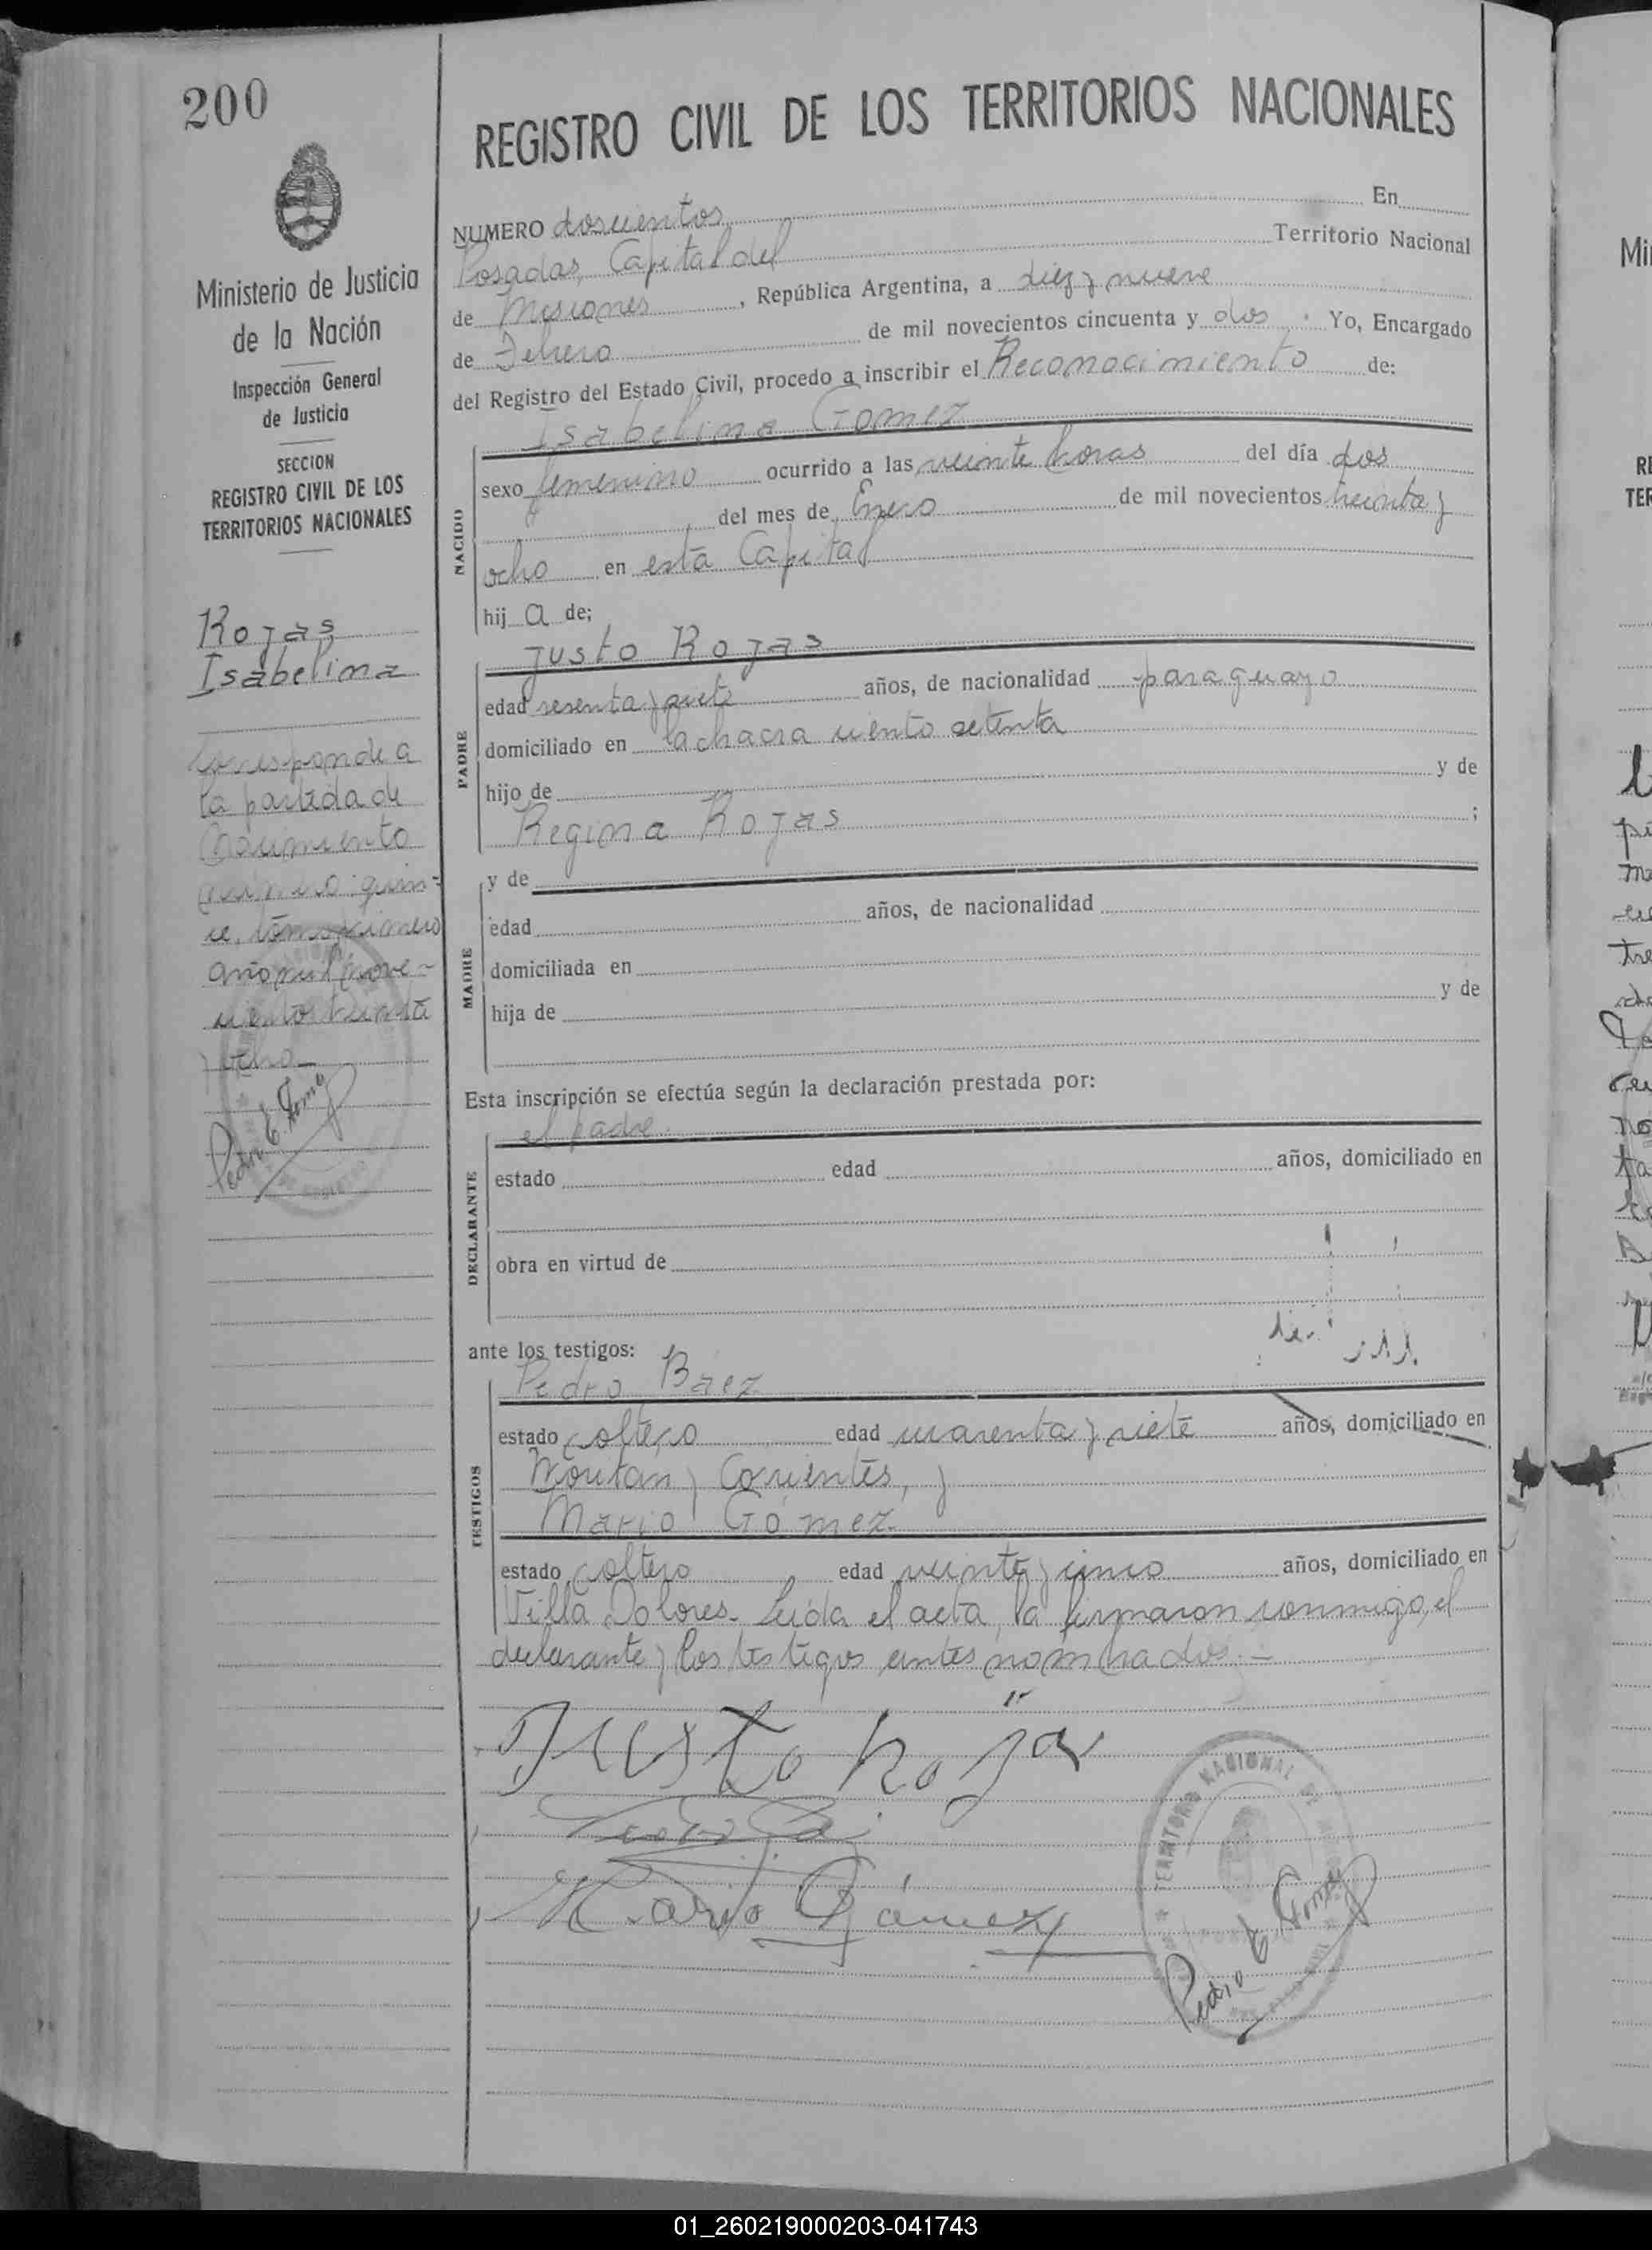 200
REGISTRO CIVIL DE LOS TERRITORIOS NACIONALES
Ministerio de Justicia
de la Nación
Inspección General
de Justicia
SECCION
REGISTRO CIVIL DE LOS
TERRITORIOS NACIONALES
Rojas
Isabelina
Corresponde a
la partida de
nacimiento
número quin-
ce, tomo primero
año mil nove-
cientos treinta
y ocho
Pedro E.
NUMERO doscientos En
Posadas, Capital del Territorio Nacional
de Misiones, República Argentina, a diez y nueve
de Febrero de mil novecientos cincuenta y dos. Yo, Encargado
del Registro del Estado Civil, procedo a inscribir el Reconocimiento de:
Isabelina Gomez
NACIDO
sexo femenino ocurrido a las veinte horas del día dos
del mes de Enero de mil novecientos treinta y
ocho en esta Capital
hij a de;
Justo Rojas
PADRE
edad sesenta y siete años, de nacionalidad paraguayo
domiciliado en la chacra ciento setenta
hijo de y de
Regina Rojas ;
y de
MADRE
edad años, de nacionalidad
domiciliada en
hija de y de
Esta inscripción se efectúa según la declaración prestada por:
el padre.
DECLARANTE
estado edad años, domiciliado en
obra en virtud de
ante los testigos:
Pedro Baez
TESTIGOS
estado soltero edad cuarenta y siete años, domiciliado en
y Corrientes, y
Mario Gómez
estado soltero edad veinte y cinco años, domiciliado en
Villa Dolores. Leída el acta, la firmaron conmigo, el
declarante y los testigos antes nombrados.-
Justo Rojas
Mario Gómez
TERRITORIO NACIONAL
Pedro E.
01_260219000203-041743